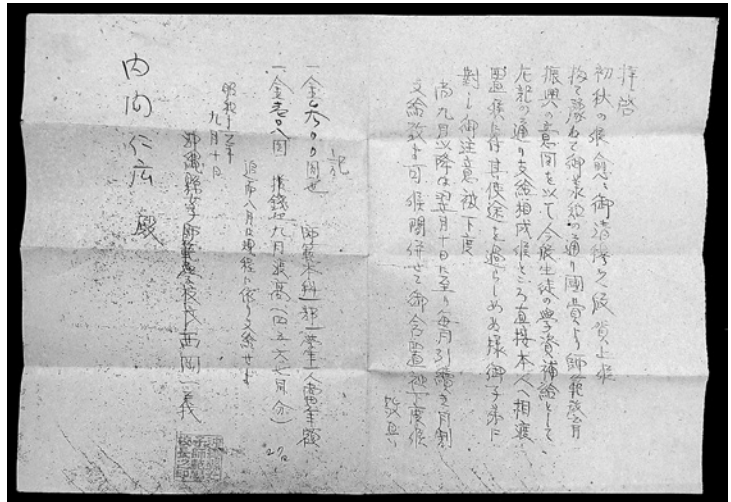 拝啓
初秋の候愈々御清穆之段賀上候
扨て予ねて御承知の通り国費より師範教育
振興の意図を以て今般生徒の学資補給として
左記の通り支給相成候ところ直接本人へ相渡
置候に付其使途を過らしめぬ様御子弟に
対し御注意被下度
尚九月以降は翌月十日に至り毎月引続き月割
支給致す可候間併せて御含置被下度候
敬具
記
一金 師範本科一部一学生一人当年額
一金 九月渡高(四五六七月分)
追而八月は規程に依り支給せず
昭和十八年
九月十日
沖縄県女子師範学校長 西岡一義
内向仁広 殿